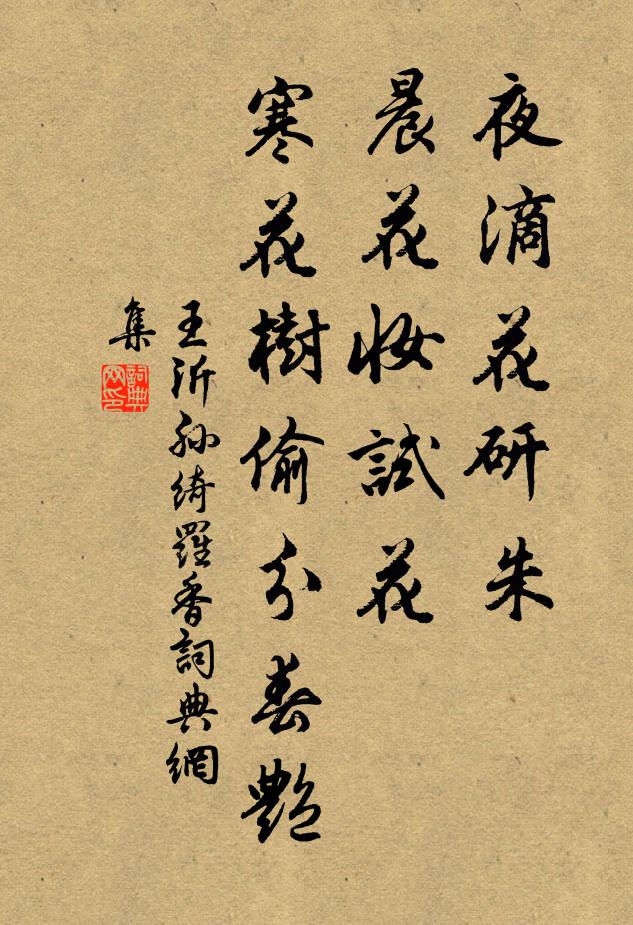 夜滴花研朱
晨花妝試花
寒花樹偷分春艷
王沂孫綺羅香詞典網
集
詞典
网印